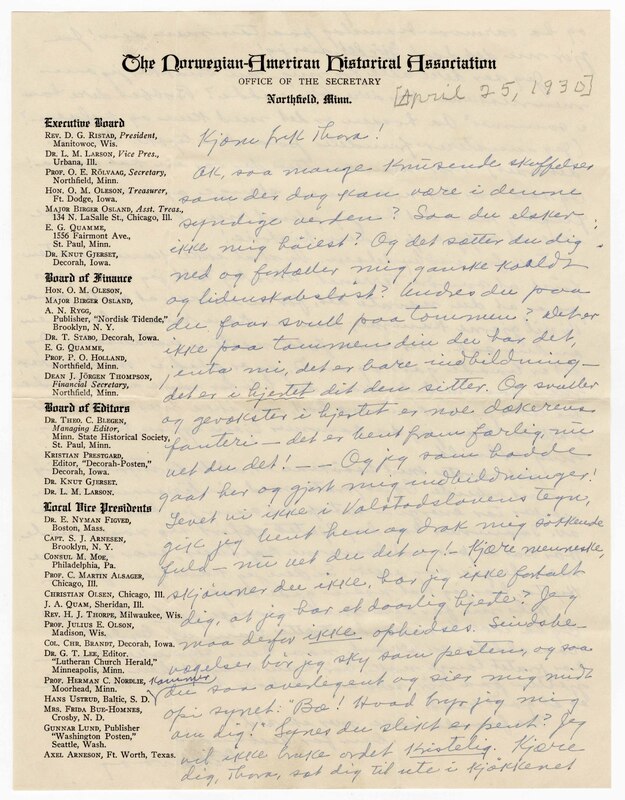 The Norwegian-American Historical Association
OFFICE OF THE SECRETARY
Northfield, Minn.
[April 25, 1930]
Executive Board
REV. D. G. RISTAD, President,
Manitowoc, Wis.
DR. L. M. LARSON, Vice Pres.,
Urbana, Ill.
PROF. O. E. RÖLVAAG, Secretary,
Northfield, Minn.
HON. O. M. OLESON, Treasurer,
Ft. Dodge, Iowa.
MAJOR BIRGER OSLAND, Asst. Treas.,
134 N. LaSalle St., Chicago, Ill.
E. G. QUAMME,
1556 Fairmont Ave.,
St. Paul, Minn.
DR. KNUT GJERSET,
Decorah, Iowa.
Board of Finance
HON. O. M. OLESON,
MAJOR BIRGER OSLAND,
A. N. RYGG,
Publisher, "Nordisk Tidende,"
Brooklyn, N. Y.
DR. T. STABO, Decorah, Iowa.
E. G. QUAMME,
PROF. P. O. HOLLAND,
Northfield, Minn.
DEAN J. JÖRGEN THOMPSON,
Financial Secretary,
Northfield, Minn.
Board of Editors
DR. THEO. C. BLEGEN,
Managing Editor,
Minn. State Historical Society,
St. Paul, Minn.
KRISTIAN PRESTGARD,
Editor, "Decorah-Posten,"
Decorah, Iowa.
DR. KNUT GJERSET.
DR. L. M. LARSON.
Local Vice Presidents
DR. E. NYMAN FIGVED,
Boston, Mass.
CAPT. S. J. ARNESEN,
Brooklyn, N. Y.
CONSUL M. MOE,
Philadelphia, Pa.
PROF. C. MARTIN ALSAGER,
Chicago, Ill.
CHRISTIAN OLSEN, Chicago, Ill.
J. A. QUAM, Sheridan, Ill.
REV. H. J. THORPE, Milwaukee, Wis.
PROF. JULIUS E. OLSON,
Madison, Wis.
COL. CHR. BRANDT, Decorah, Iowa.
DR. G. T. LEE, Editor,
"Lutheran Church Herald,"
Minneapolis, Minn.
PROF. HERMAN C. NORDLIE,
Moorhead, Minn.
HANS USTRUD, Baltic, S. D.
MRS. FRIDA BUE-HOMNES,
Crosby, N. D.
GUNNAR LUND, Publisher
"Washington Posten,"
Seattle, Wash.
AXEL ARNESON, Ft. Worth, Texas.
Kjære frk Thora!
Ak, saa mange knusende skuffelser
som der dog kan være i denne
syndige verden? Saa du elsker
ikke mig høiest? Og det sætter du dig
ned og fortæller mig ganske koldt
og lidenskabsløst? Undres du paa
du faar svull paa tommen? Det er
ikke paa tommen din du har det,
jenta mi, det er bare indbildning—
det er i hjertet dit den sitter. Og svuller
og gevækster i hjertet er noe
fanteri — det er bent fram farlig, nu
vet du det! — — Og jeg som havde
gaat her og gjort mig indbildninger!
Levet vi ikke i Volstadslovens tegn,
gik jeg bent hen og drak mig søkkende
fuld — nu vet du det og! — Kjære menneske,
skjønner du ikke, har jeg ikke fortalt
dig, at jeg har et daarlig hjerte? Jeg
maa derfor ikke ophidses. Sindsbe-
vægelser bør jeg sky som pesten, og saa
kommer
du saa overlegent og sier mig midt
op i synet: "Bæ! Hvad bryr jeg mig
om dig!" Synes du slikt er pent? Jeg
vil ikke bruke ordet kristelig. Kjære
dig, Thora, sæt dig til ute i kjøkkenet